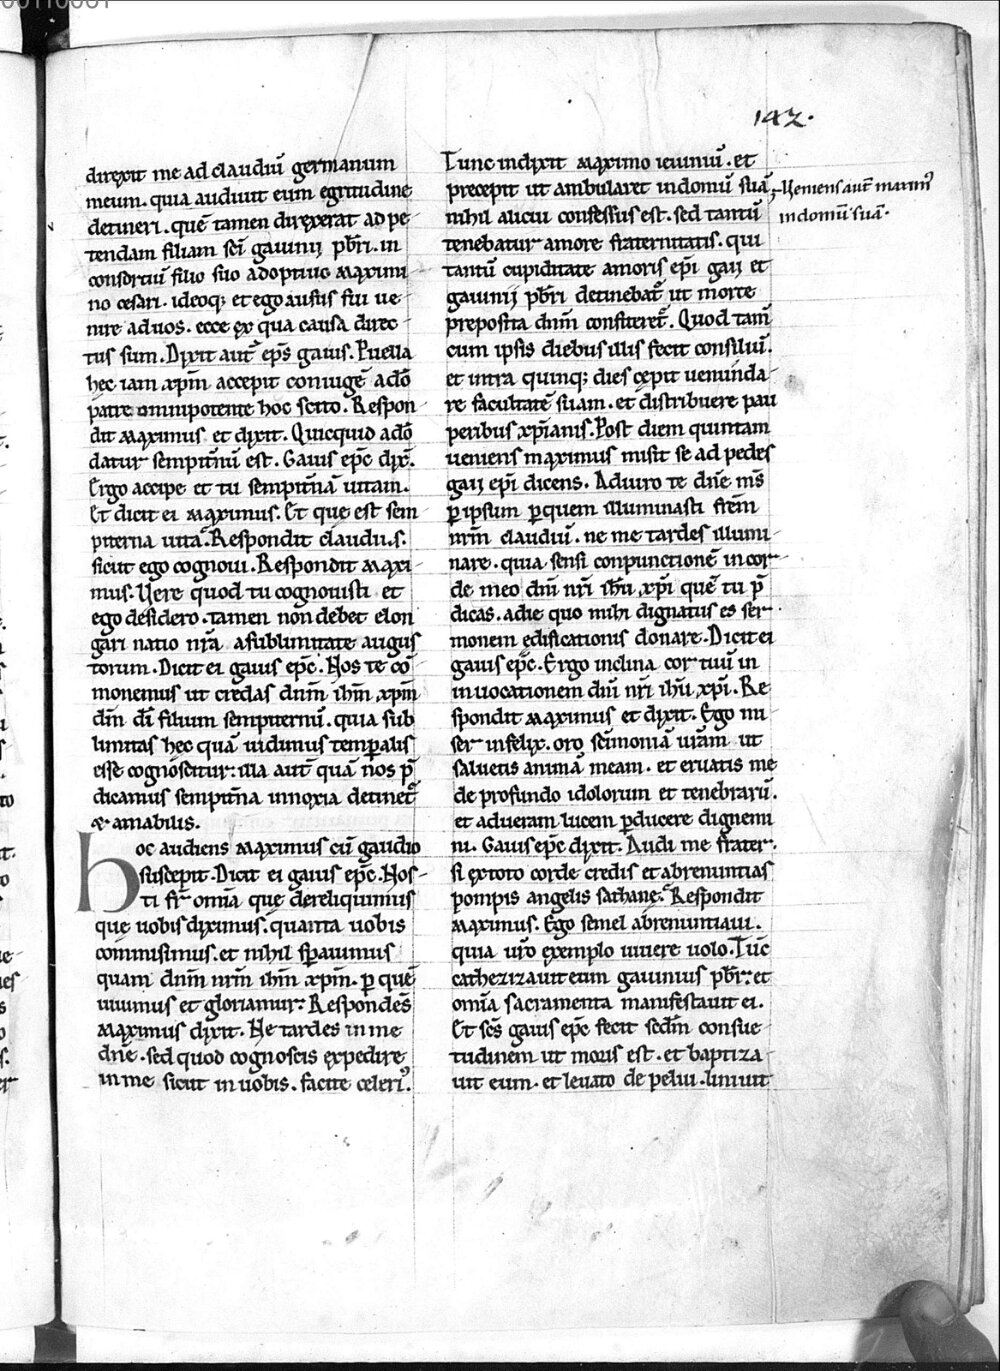 142.
direxit me ad claudiū germanum
meum. quia audiuit eum egritudine
detineri. quē tamen direxerat ad pe-
tendam filiam sc̄i gauinij p̄bri. in
consortiū filio suo adoptiuo maximi-
no cesari. ideoq; et ego ausus fui ue-
nire ad uos. ecce ex qua causa direc-
tus sum. Dixit aut̄ ep̄s gaius. Puella
hec iam xp̄m accepit coniugē a dō
patre omnipotente hoc scito. Respon-
dit maximus et dixit. Quicquid a dō
datur sempit̄nū est. Gaius ep̄c dix̄.
Ergo accipe et tu sempit̄nā uitam.
Et dicit ei maximus. Et que est sem-
piterna uita? Respondit claudius.
sicut ego cognoui. Respondit maxi-
mus. Vere quod tu cognouisti et
ego desidero. tamen non debet elon-
gari natio nr̄a a sublimitate augus-
torum. Dicit ei gaius ep̄c. Nos te co-
monemus ut credas dn̄m ih̄m xp̄m
dn̄m dī filium sempiternū. quia sub-
limitas hec quā uidimus temp̄alis
esse cognoscitur: illa aut̄ quā nos p̄-
dicamus sempit̄na innoxia detinet̄
& amabilis.
Hoc audiens maximus cū gaudio
suscepit. Dicit ei gaius ep̄c. Nos-
ti fr̄ om̄ia que dereliquimus
que uobis diximus. quanta uobis
commisimus. et nihil sp̄auimus
quam dn̄m nr̄m ih̄m xp̄m. p̄ quē
uiuimus et gloriamur. Respondēs
maximus dixit. Ne tardes in me
dn̄e. sed quod cognoscis expedire
in me sicut in uobis. facite celeri⁹.
Tunc indixit maximo ieiuniū. et
precepit ut ambularet in domū suā.
nihil alicui confessus est. sed tantū
tenebatur amore fraternitatis. qui
tantū cupiditate amoris ep̄i gaij et
gauinij p̄bri detinebat̄ ut morte
preposita dn̄m confiteret̄. Quod tam̄
cum ipsis diebus illis fecit consiliū.
et intra quinq; dies cepit uenunda-
re facultatē suam. et distribuere pau-
peribus xp̄ianis. Post diem quintam
ueniens maximus misit se ad pedes
gaij ep̄i dicens. Adiuro te dn̄e m̄s
p̄ ipsum p̄ quem illuminasti fr̄em
nr̄m claudiū. ne me tardes illumi-
nare. quia sensi conpunctionē in cor-
de meo dn̄i nr̄i ih̄u xp̄i quē tu p̄-
dicas. a die quo mihi dignatus es ser-
monem edificationis donare. Dicit ei
gaius ep̄c. Ergo inclina cor tuū in
inuocationem dn̄i nr̄i ih̄u xp̄i. Re-
spondit maximus et dixit. Ego mi-
ser infelix. oro sc̄imoniā ur̄am ut
saluetis animā meam. et eruatis me
de profundo idolorum et tenebrarū.
et ad ueram lucem p̄ducere dignemi-
ni. Gaius ep̄c dixit. Audi me frater.
si ex toto corde credis et abrenuntias
pompis angelis sathane? Respondit
maximus. Ego semel abrenuntiaui.
quia ur̄o exemplo uiuere uolo. Tūc
cathezizauit eum gauinius p̄br. et
om̄ia sacramenta manifestauit ei.
Et sc̄s gaius ep̄c fecit secdm̄ consue-
tudinem ut moris est. et baptiza-
uit eum. et leuato de pelui. liniuit
Veniens aut̄ maxim⁹
in domū suā.